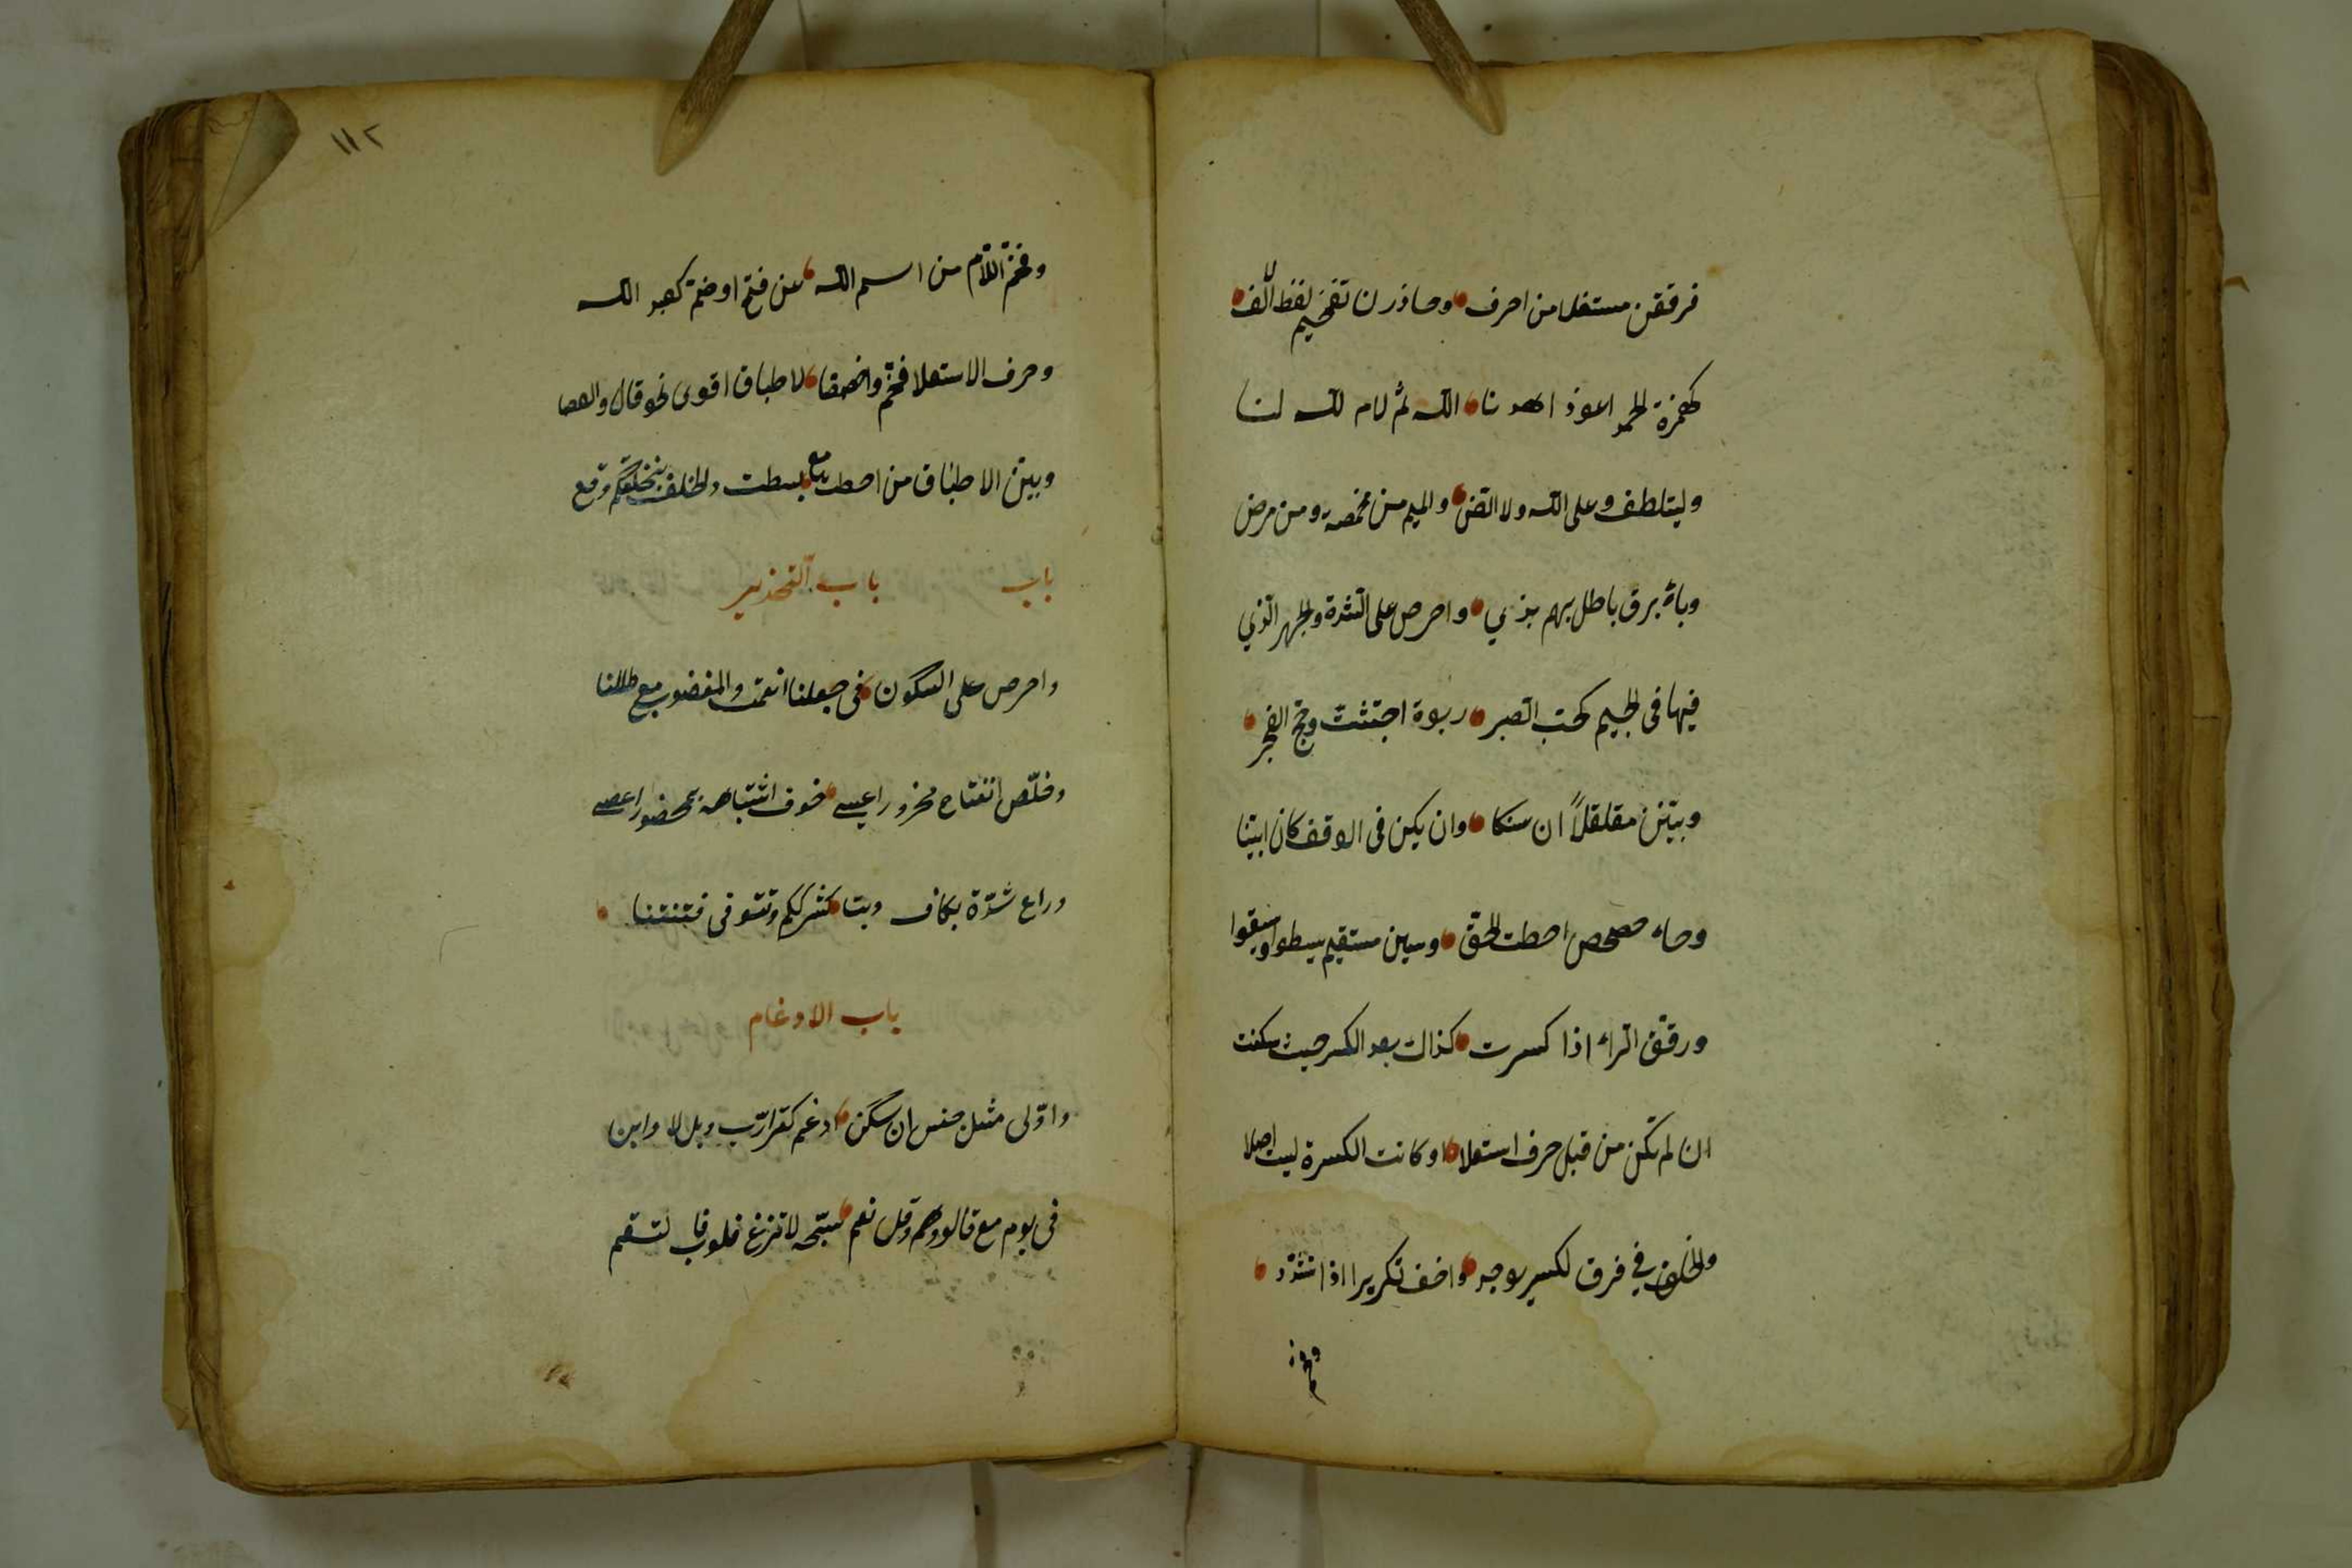 فرققن مستفلا من احرف وحاذرن تفخيم لفظ الالف
كهمزة الحمد اعوذ اهدنا الله ثم لام لله لنا
وليتلطف وعلى الله ولا الض والميم من مخمصة ومن مرض
وباء برق باطل بهم بذي واحرص على الشدة والجهر الذي
فيها في الجيم كحب الصبر ربوة اجتثت وحج الفجر
وبينن مقلقلاً ان سكنا وان يكن في الوقف كان ابينا
وحاء حصحص احطت الحق وسين مستقيم يسطوا ويسقوا
ورقق الراء اذا كسرت كذاك بعد الكسر حيث سكنت
ان لم تكن من قبل حرف استعلا او كانت الكسرة ليست اصلا
والخلف في فرق لكسر يوجد واخف تكريرا اذا تشدد
وفخم
١١٢
وفخم اللام من اسم الله عن فتح او ضم كعبد الله
وحرف الاستعلا فخم واخصصا لاطباق اقوى نحو قال والعصا
وبين الاطباق من احطت مع بسطت والخلف بنخلقكم وقع
باب باب التحذير
واحرص على السكون في جعلنا انعمت والمغضوب مع ظللنا
وخلص انفتاح محذورا عسى خوف اشتباهه بمحضورا عصى
وراع شدة بكاف وبتا كشرككم وتتوفى فتنتنا
باب الادغام
واولى مثل جنس ان سكن ادغم كقل رب وبل لا وابن
في يوم مع قالوا وهم وقل نعم سبحه لا تزغ قلوب فالتقم